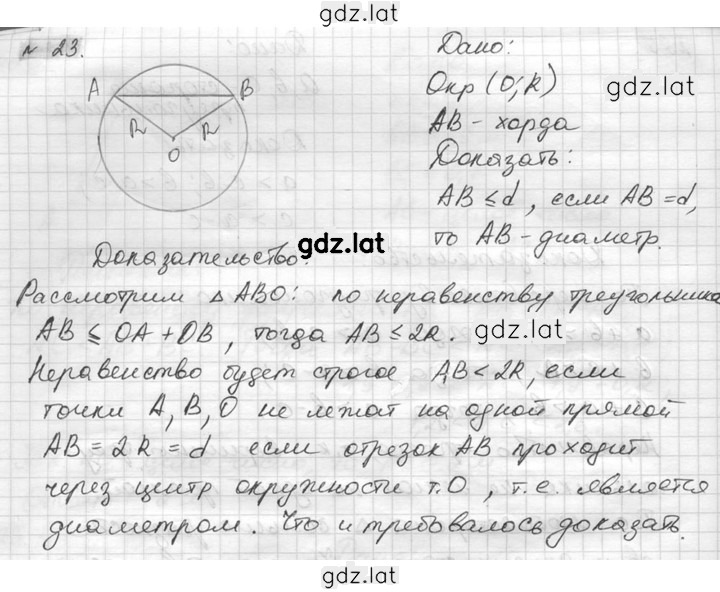 gdz.lat
№ 23.
A
B
R
R
O
Дано:
gdz.lat
Окр (O; R)
AB - хорда
Доказать:
AB ≤ d, если AB = d,
то AB - диаметр.
gdz.lat
Доказательство:
Рассмотрим △ ABO: по неравенству треугольника
AB ≤ OA + OB, тогда AB ≤ 2R.
gdz.lat
Неравенство будет строгое AB < 2R, если
точки A, B, O не лежат на одной прямой
AB = 2R = d если отрезок AB проходит
через центр окружности т.O, т.е. является
диаметром. Что и требовалось доказать.
gdz.lat